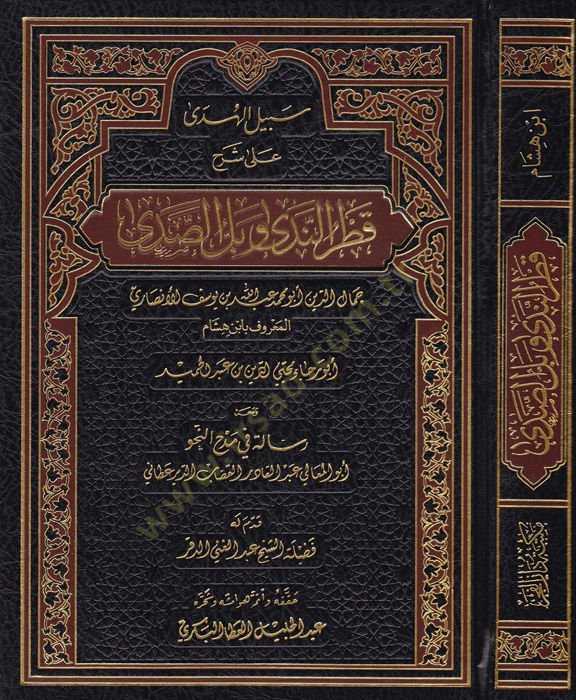 سبيل الهدى
على شرح
قطر الندى وبل الصدى
جمال الدين أبو محمد عبد الله بن يوسف الأنصاري
المعروف بابن هشام
أبو رجاء محيي الدين بن عبد الحميد
ومعه
رسالة في مدح النحو
أبو المعالي عبد القادر القصاب الديرعطاني
قدم له
فضيلة الشيخ عبد الغني الدقر
حققه وأتم هوامشه وحرره
عبد الجليل العطا البكري
ابن هشام
قطر الندى وبل الصدى
مكتبة دار الفجر